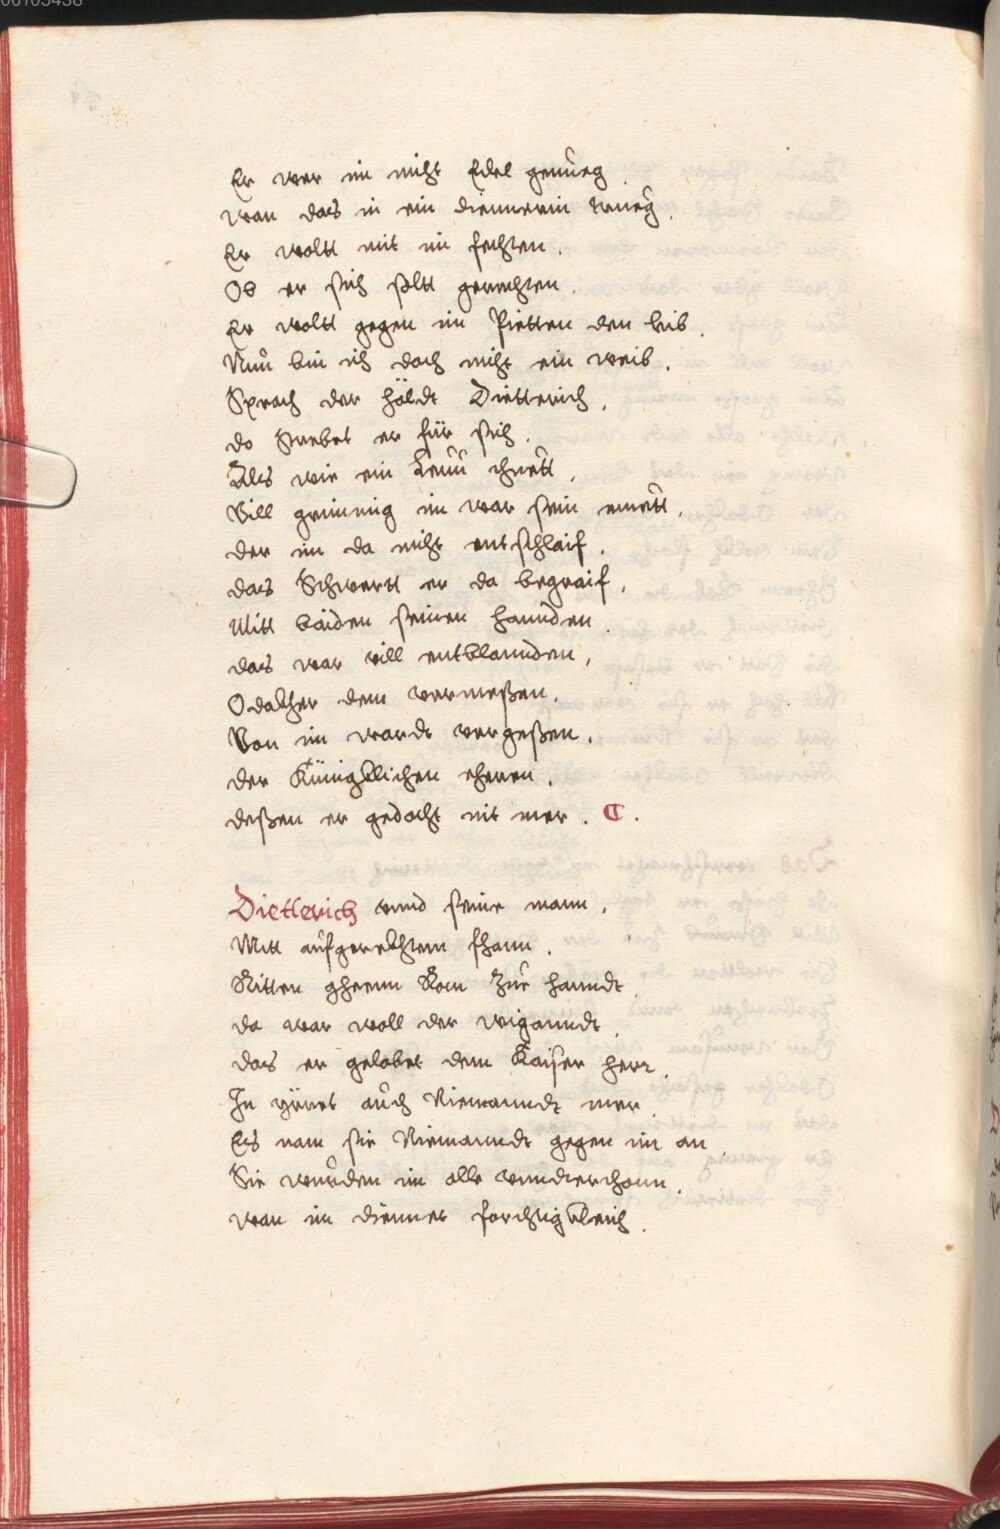 Er wer im nicht Edel genueg.
wan das in ein diennerin trueg.
Er woltt mit im fechten.
Ob er sich soltt gerechten.
Er woltt gegen im Pietten den leib.
Nun bin ich doch nicht ein weib.
Sprach der höldt Dietterich.
do strebet er für sich.
Als wie ein Leuu thuett.
Vill grimmig im war sein muett.
der im da nicht entschlaif.
das Schwertt er da begraif.
Mitt baiden seinen hannden.
das war vill entblannden.
Odakher dem vermeßen.
Von im wardt vergeßen.
der Künigklichen eheren.
deßen er gedacht nit mer. C.
Dietterich vnnd seine mann.
Mitt aufgerekhtem fhann.
Ritten gheenn Rom zur hanndt.
da war woll der wiganndt.
das er gelobet dem Kaiser herr.
In yrret auch Niemanndt mer.
Es nam sie Niemanndt gegen im an.
Sie wurden im alle vnndterthonn.
wan im diennet forchtigkleich.